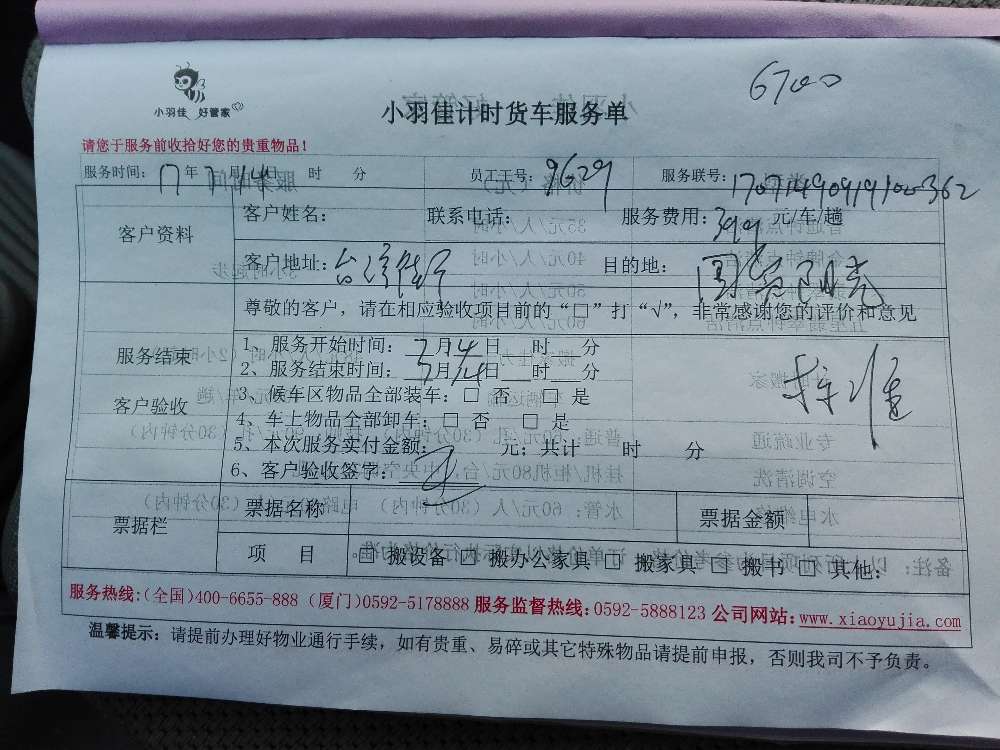 6700
小羽佳 好管家
小羽佳计时货车服务单
请您于服务前收拾好您的贵重物品！
服务时间： 17 年 7 月 14 日 时 分 员工工号： 9629 服务联号： 17071490919100362
客户资料
客户姓名： 联系电话： 服务费用： 399 元/车/趟
客户地址： 台湾街 目的地：
服务结束
客户验收
尊敬的客户，请在相应验收项目前的“□”打“√”，非常感谢您的评价和意见
1、服务开始时间： 7 月 14 日 时 分
2、服务结束时间： 7 月 14 日 时 分
3、候车区物品全部装车：□ 否 □ 是
4、车上物品全部卸车：□ 否 □ 是
5、本次服务实付金额： 元；共计 时 分
6、客户验收签字：
票据栏
票据名称 票据金额
项 目 □ 搬设备 □ 搬办公家具 □ 搬家具 □ 搬书 □ 其他：
服务热线：(全国)400-6655-888 (厦门)0592-5178888 服务监督热线：0592-5888123 公司网站：www.xiaoyujia.com
温馨提示：请提前办理好物业通行手续，如有贵重、易碎或其它特殊物品请提前申报，否则我司不予负责。